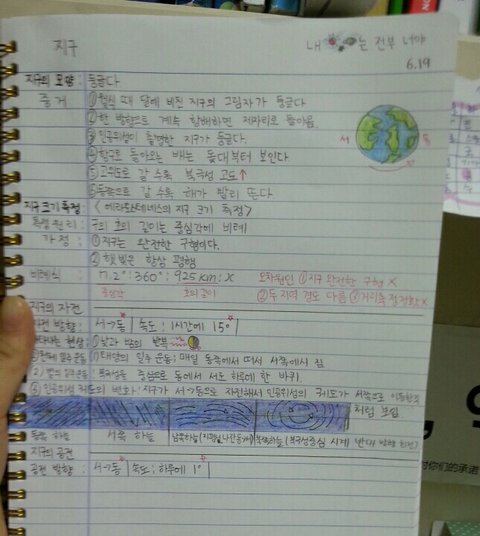 지구
내 는 전부 너야
6.19
지구의 모양 : 둥글다
증거 ①월식 때 달에 비친 지구의 그림자가 둥글다
②한 방향으로 계속 항해하면 제자리로 돌아옴
③인공위성이 촬영한 지구가 둥글다.
④항구로 돌아오는 배는 돛대부터 보인다
⑤고위도로 갈 수록 북극성 고도↑
⑥동쪽으로 갈 수록 해가 빨리 뜬다
서 동
지구 크기 측정 : <에라토스테네스의 지구 크기 측정>
측정 원리 : 호의 길이는 중심각에 비례
가정 : ①지구는 완전한 구형이다.
②햇빛은 항상 평행
비례식 : 7.2° : 360° : 925km : x 오차원인 ①지구 완전한 구형 X
중심각 호의 길이 ②두 지역 경도 다름 ③거리측정 정확X
지구의 자전
자전 방향 : 서→동 속도 : 1시간에 15°
나타나는 현상 ①낮과 밤의 반복
②천체의 일주 운동 1)태양의 일주 운동 ; 매일 동쪽에서 떠서 서쪽에서 짐
2)별의 일주운동 : 북극성을 중심으로 동에서 서로 하루에 한 바퀴.
③인공위성 궤도의 변화 : 지구가 서→동으로 자전해서 인공위성의 궤도가 서쪽으로 이동한것
처럼 보임
동쪽 하늘 서쪽 하늘 남쪽하늘 북쪽하늘 (북극성중심 시계 반대 방향 회전)
지구의 공전
공전 방향 : 서→동 속도 : 하루에 1°
对你们的承诺